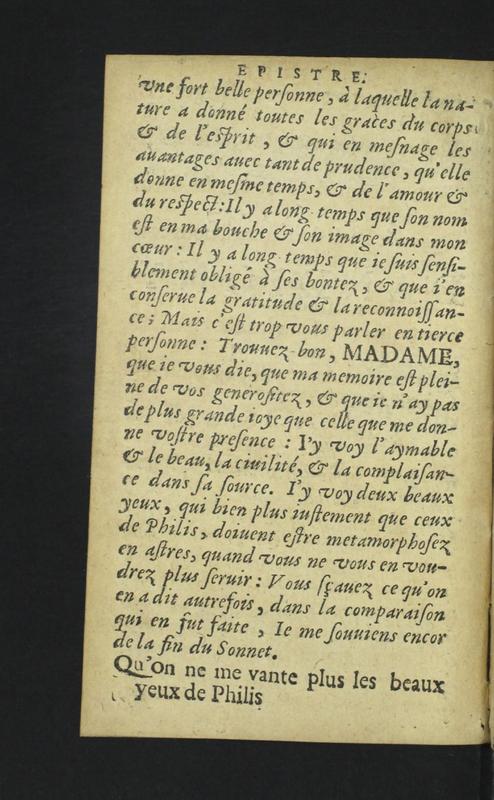 EPISTRE.
vne fort belle personne, à laquelle la na-
ture a donné toutes les graces du corps
& de l'esprit, & qui en mesnage les
auantages auec tant de prudence, qu'elle
donne en mesme temps, & de l'amour &
du respect: Il y a long temps que son nom
est en ma bouche & son image dans mon
cœur: Il y a long temps que ie suis sensi-
blement obligé à ses bontez, & que i'en
conserue la gratitude & la reconnoissan-
ce; Mais c'est trop vous parler en tierce
personne: Trouuez bon, MADAME,
que ie vous die, que ma memoire est plei-
ne de vos generositez, & que ie n'ay pas
de plus grande ioye que celle que me don-
ne vostre presence: I'y voy l'aymable
& le beau, la ciuilité, & la complaisan-
ce dans sa source. I'y voy deux beaux
yeux, qui bien plus iustement que ceux
de Philis, doiuent estre metamorphosez
en astres, quand vous ne vous en vou-
drez plus seruir: Vous sçauez ce qu'on
en a dit autrefois, dans la comparaison
qui en fut faite, Ie me souuiens encor
de la fin du Sonnet.
Qu'on ne me vante plus les beaux
yeux de Philis